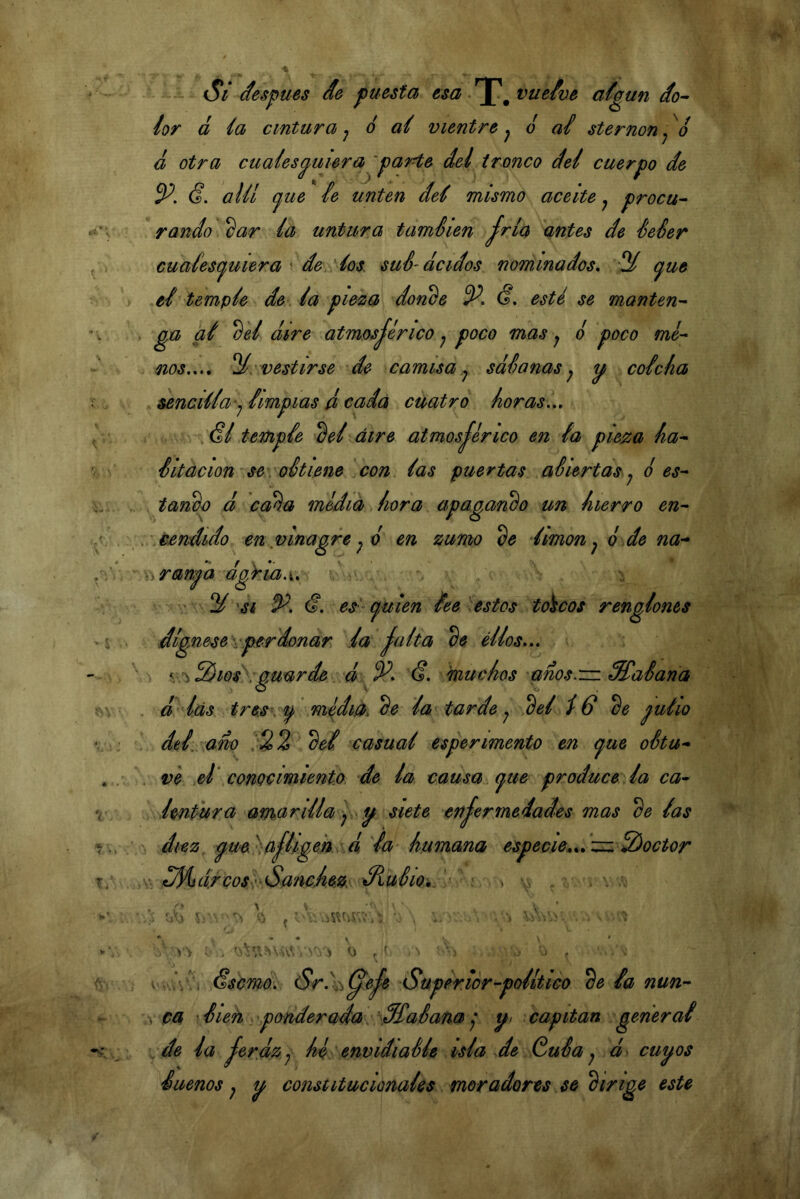 Si despues de puesta esa T. vuelve algun do-
lor á la cintura, ó al vientre, ó al sternon, ó
á otra cualesquiera parte del tronco del cuerpo de
V. E. allí que le unten del mismo aceite, procu-
rando dar la untura tambien fría antes de beber
cualesquiera de los sub-ácidos nominados. Y que
el temple de la pieza donde V. E. esté se manten-
ga al del áire atmosférico, poco mas, ó poco mé-
nos.... Y vestirse de camisa, sábanas, y colcha
sencilla, limpias á cada cuatro horas...
El temple del áire atmosférico en la pieza ha-
bitacion se obtiene con las puertas abiertas, ó es-
tando á cada média hora apagando un hierro en-
cendido en vinagre, ó en zumo de limon, ó de na-
ranja ágria...
Y si V. E. es quien lee estos toscos renglones
dígnese perdonar la falta de éllos...
Dios guarde á V. E. muchos años.= Habana
á las tres y média de la tarde, del 16 de julio
del año 22 del casual esperimento en que obtu-
ve el conocimiento de la causa que produce la ca-
lentura amarilla, y siete enfermedades mas de las
diez que afligen á la humana especie...= Doctor
Márcos Sanchez Rubio.
Escmo. Sr. Gefe Superior-político de la nun-
ca bien ponderada Habana; y capitan general
de la feráz, hé envidiable isla de Cuba, á cuyos
buenos, y constitucionales moradores se dirige este